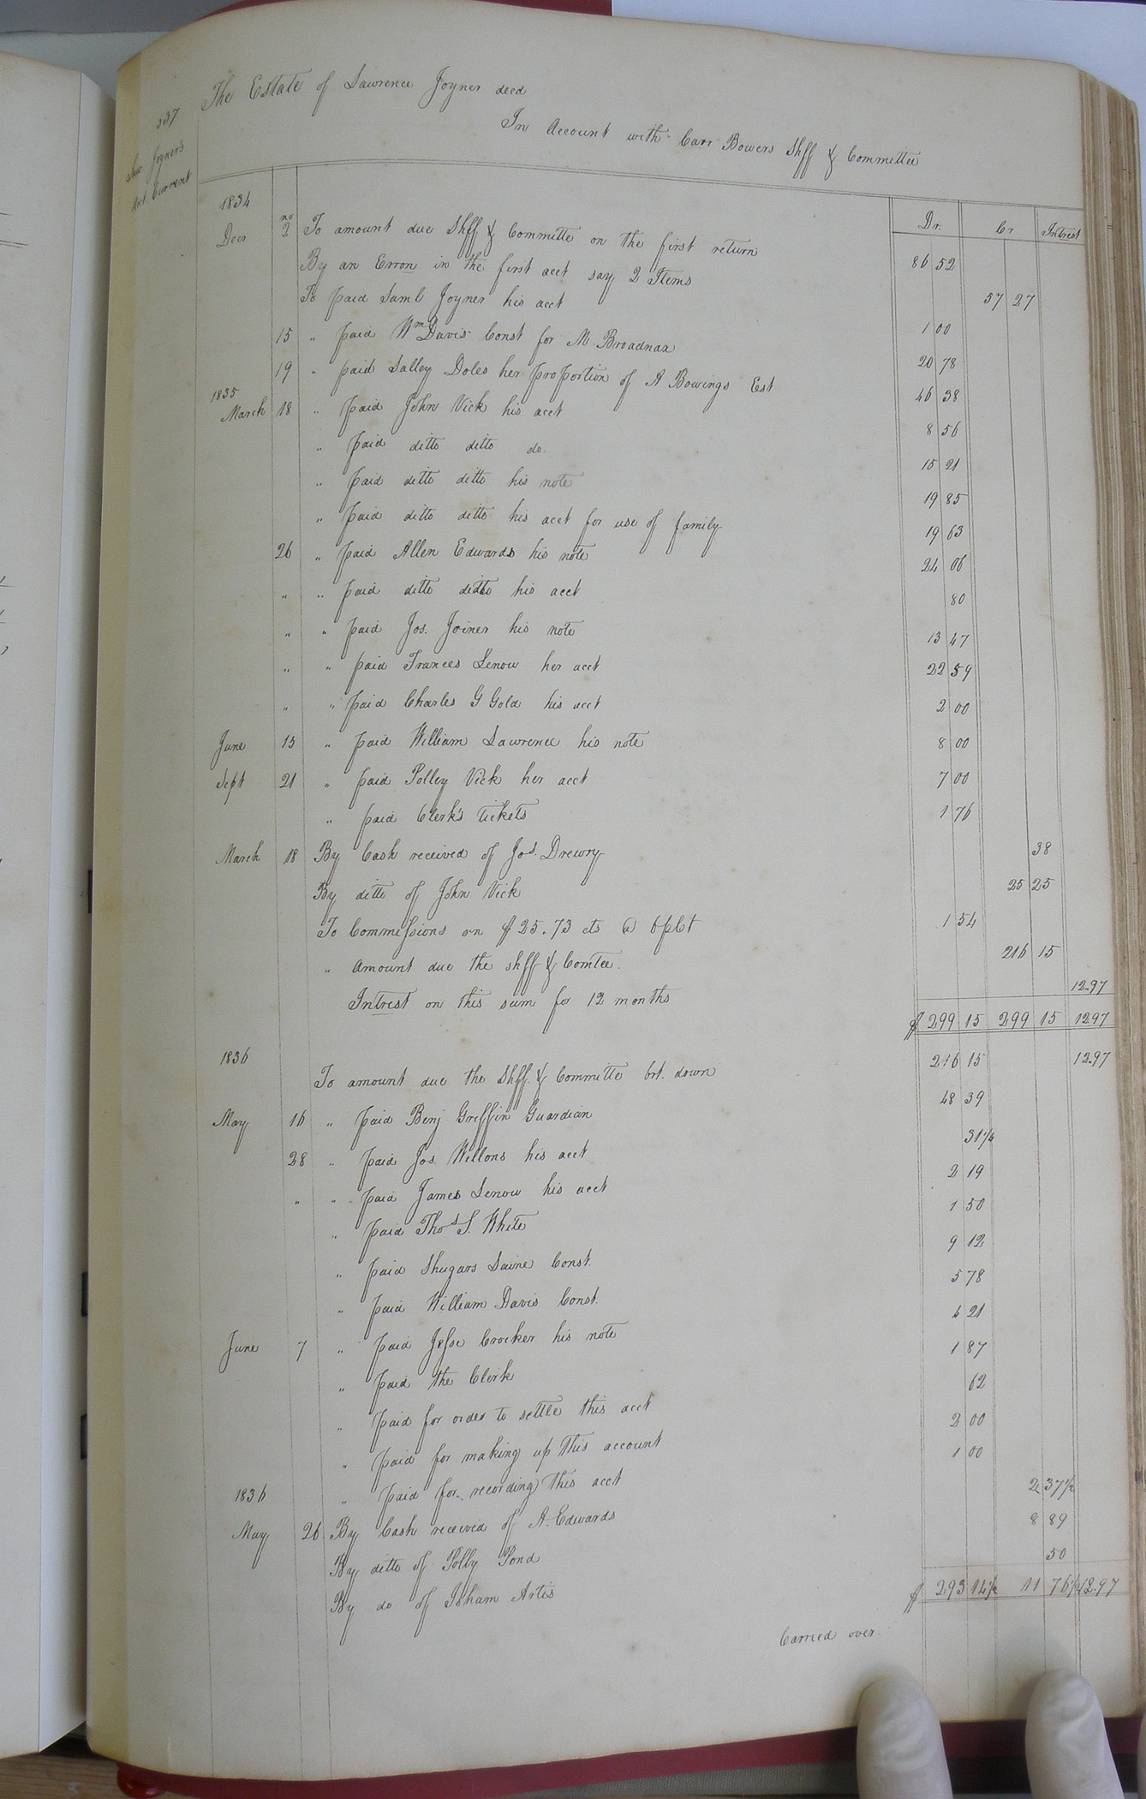 337
Law Joyner's
Act Current
The Estate of Lawrence Joyner decd
In Account with Carr Bowers Shff & Committee
Dr. Cr Intrest
1834
Decr no 2 To amount due Shff & Committe on the first return 86 52
By an Erron in the first acct say 2 Items 57 27
To paid Saml Joyner his acct 1 00
15 " paid Wm Davis Const for M Broadnax 20 78
19 " paid Salley Doles her proportion of A Bowings Est 46 38
1835
March 18 " paid John Vick his acct 8 56
" paid ditto ditto do. 15 21
" paid ditto ditto his note 19 85
" paid ditto ditto his acct for use of family 19 63
26 " paid Allen Edwards his note 24 06
" " paid ditto ditto his acct 80
" " paid Jos. Joiner his note 13 47
" " paid Frances Lenow her acct 22 59
" " paid Charles G Gold his acct 2 00
June 13 " paid William Lawrence his note 8 00
Sept 21 " paid Polley Vick her acct 7 00
" paid Clerk's Tickets 1 76
March 18 By Cash received of Jos. Drewry 38
By ditto of John Vick 25 25
To Commessions on $25.73 cts @ 6 pCt 1 54
" Amount due the shff & Comtee. 216 15
Intrest on this sum for 12 months 12.97
$ 299 15 299 15 12 97
1836
To amount due the Shff. & Committe brt. down 216 15 12.97
May 16 " Paid Benj Greffin Guardian 48 39
28 " Paid Jos. Wellons his acct 31 1/4
" " Paid James Lenow his acct 2 19
" Paid Thos. S. White 1 50
" Paid Shugars Laine Const. 9 12
" Paid William Davis Const. 5 78
June 7 " Paid Jesse Crocker his note 4 21
" Paid the Clerk 1 87
" Paid for order to settle this acct 62
" Paid for making up this account 2 00
" Paid for recording this acct 1 00
1836
May 26 By Cash received of A. Edwards 2 37 1/2
By ditto of Polly Pond 8 89
By do of Isham Artis 50
$ 293 14 1/2 11 76 1/2 12.97
Carried over.